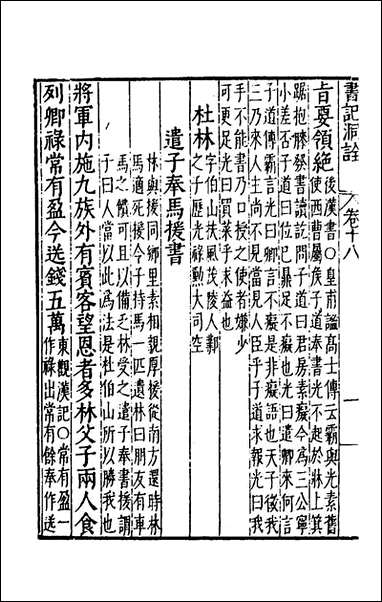 書記洞詮
卷十八
一
旨要領絶
後漢書〇皇甫謐高士傳云霸與光素舊
使西曹屬侯子道奉書光不起於牀上箕
踞抱膝發書讀訖問子道曰君房素癡今為三公寧
小差否子道曰位已鼎足不癡也光曰遣卿來何言
子道傳霸言光曰卿言不癡是非癡語也天子徵我
三乃來人主尚不見當見人臣乎子道求報光曰我
手不能書乃口授之使者嫌少
可更足光曰買菜乎求益也
杜林
字伯山扶風茂陵人鄴
之子歷光祿勲大司空
遣子奉馬援書
林與援同鄉里素相親厚後從南方還時林
馬適死援令子持馬一匹遺林曰朋友有車
馬之饋可且以備乏林受之遣子奉書援謂
子曰人當以此為法是杜伯山所以勝我也
將軍内施九族外有賓客望恩者多林父子兩人食
列卿祿常有盈今送錢五萬
東觀漢記〇常有盈一
作祿出常有餘奉作送